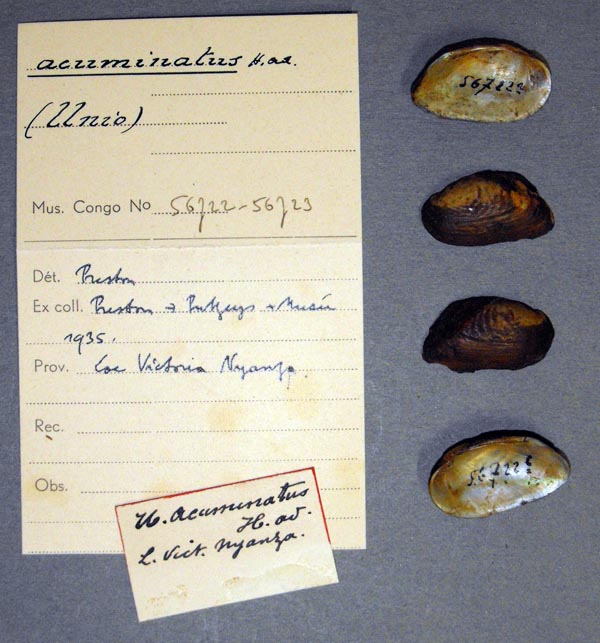 acuminatus H. ad.
(Unio)
Mus. Congo No 56722-56723
Dét. Preston
Ex coll. Preston → Putzeys → Musée
1935.
Prov. Lac Victoria Nyanza.
Rec.
Obs.
U. acuminatus
H. ad.
L. Vict. Nyanza.
56722
56722